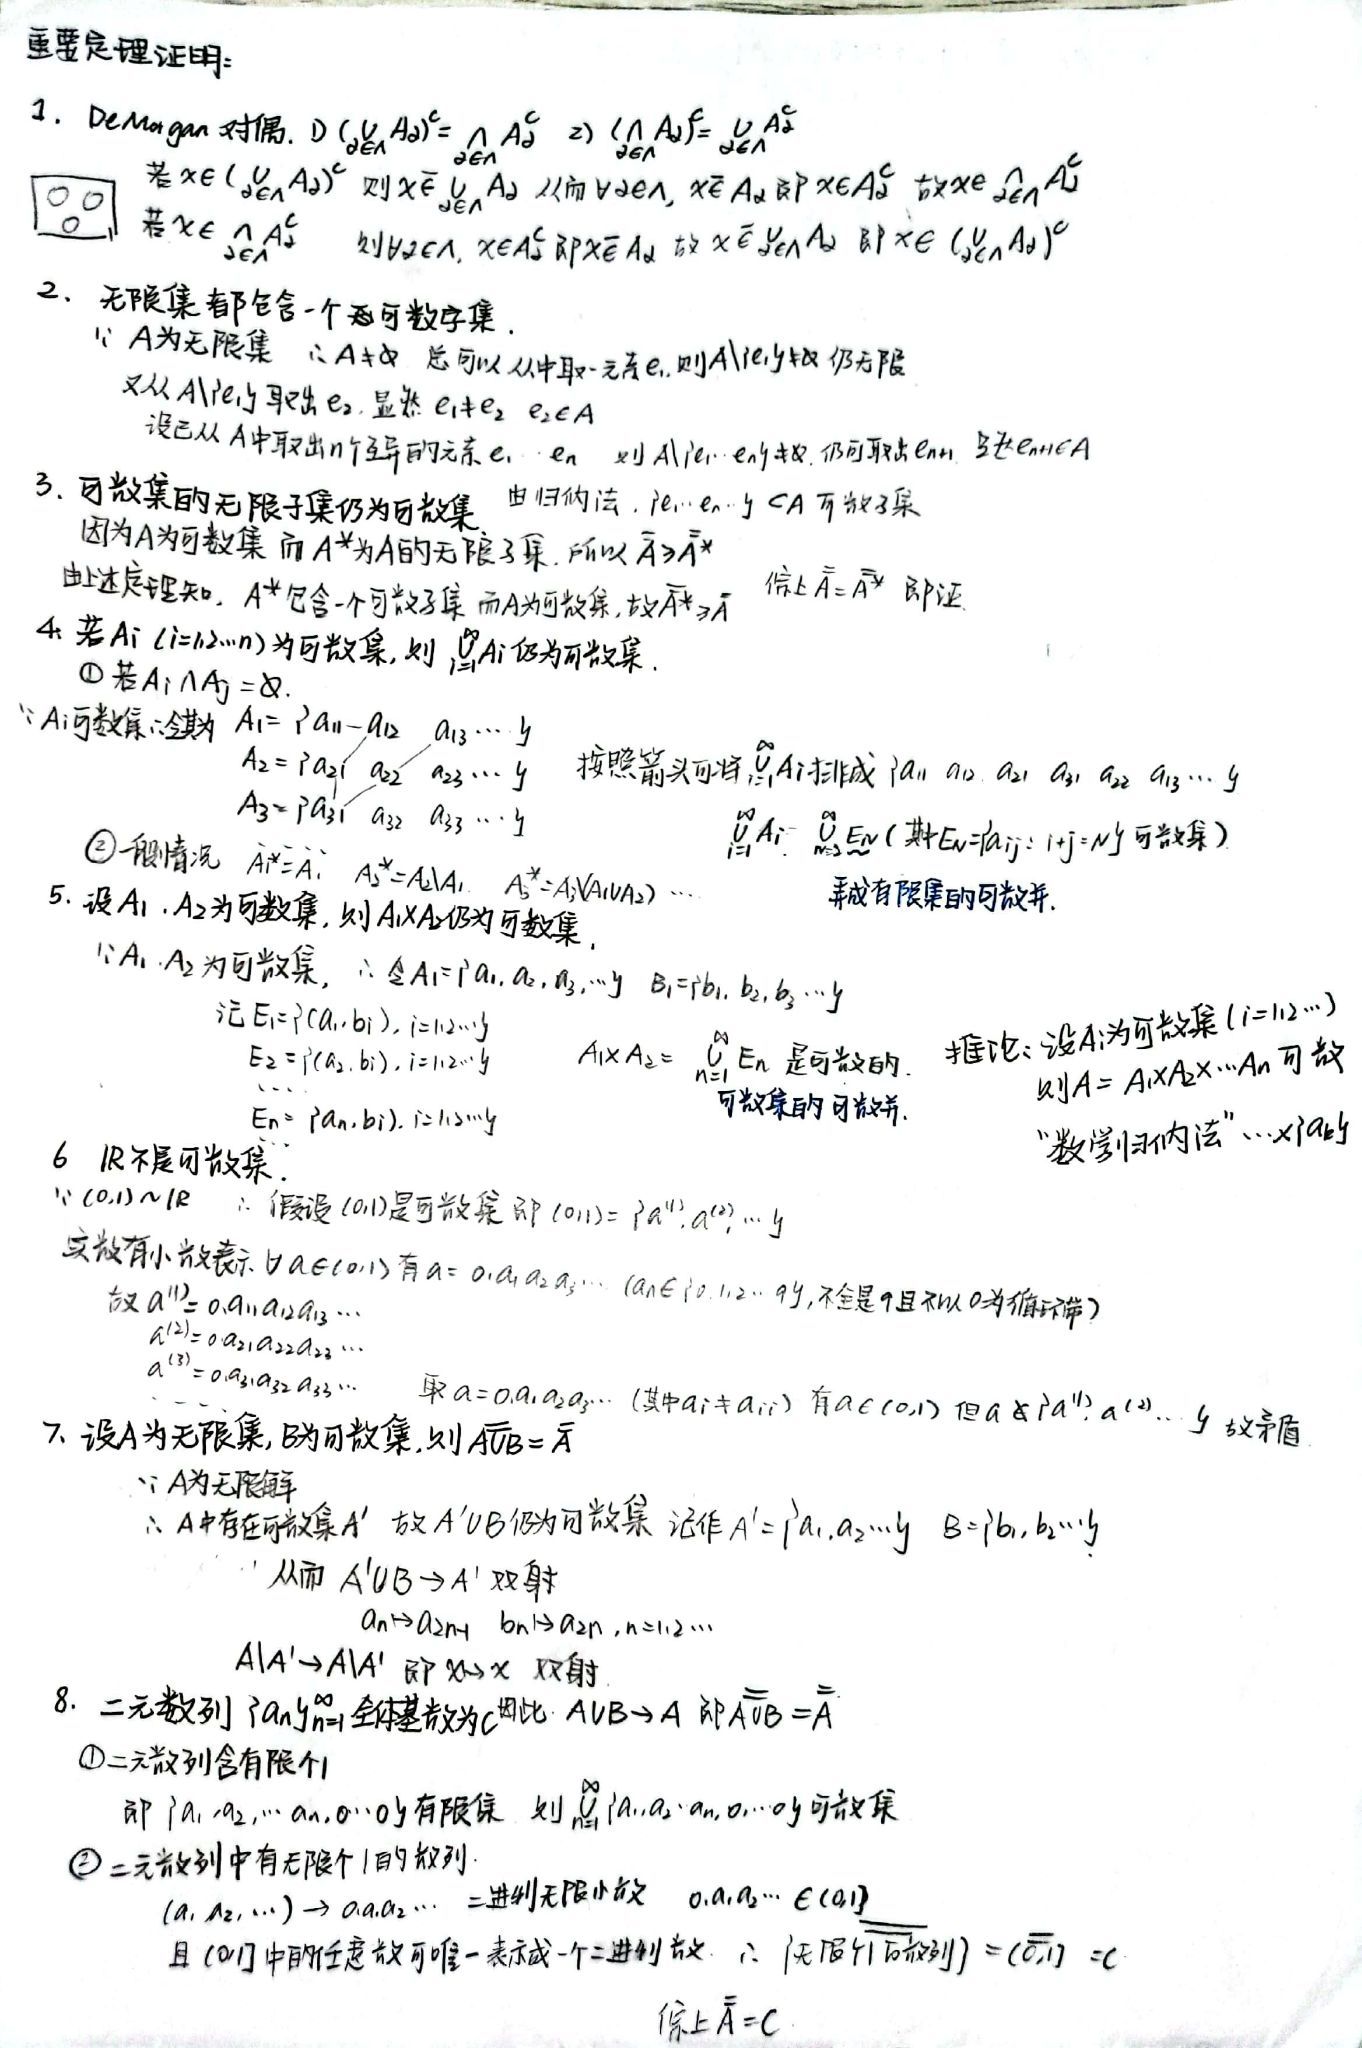 重要定理证明:
1. DeMorgan 对偶. 1) (∪_{α∈Λ} Aα)^c = ∩_{α∈Λ} Aα^c 2) (∩_{α∈Λ} Aα)^c = ∪_{α∈Λ} Aα^c
若 x∈(∪_{α∈Λ} Aα)^c 则 x∈̄ ∪_{α∈Λ} Aα 从而 ∀α∈Λ, x∈̄ Aα 即 x∈Aα^c 故 x∈ ∩_{α∈Λ} Aα^c
若 x∈ ∩_{α∈Λ} Aα^c 则 ∀α∈Λ, x∈Aα^c 即 x∈̄ Aα 故 x∈̄ ∪_{α∈Λ} Aα 即 x∈ (∪_{α∈Λ} Aα)^c
2. 无限集都包含一个可数子集.
∵ A为无限集 ∴ A≠∅ 总可以从中取一元素e₁, 则A\{e₁}≠∅ 仍无限
又从 A\{e₁} 取出 e₂, 显然 e₁≠e₂ e₂∈A
设已从 A中取出n个互异的元素 e₁…en 则 A\{e₁…en}≠∅. 仍可取出en+1 en+1∈A
由归纳法. {e₁…en…}⊂A 可数子集
3. 可数集的无限子集仍为可数集
因为A为可数集 而 A*为A的无限子集. 所以 A̿≥A̿*
由上述定理知, A*包含一个可数子集 而A为可数集, 故A̿*≥A̿ 综上 A̿=A̿* 即证.
4. 若 Ai (i=1,2…n) 为可数集, 则 ∪_{i=1}^∞ Ai 仍为可数集.
① 若 Ai∩Aj=∅.
∵ Ai可数集 ∴ 令其为 A₁={a₁₁ a₁₂ a₁₃ … }
A₂={a₂₁ a₂₂ a₂₃ … } 按照箭头可将 ∪_{i=1}^∞ Ai 排成 {a₁₁ a₁₂ a₂₁ a₃₁ a₂₂ a₁₃ … }
A₃={a₃₁ a₃₂ a₃₃ … }
∪_{i=1}^∞ Ai = ∪_{N=2}^∞ EN (其中EN={aij: i+j=N} 可数集)
② 一般情况 A₁*=A₁ A₂*=A₂\A₁ A₃*=A₃\(A₁∪A₂) …
弄成有限集的可数并.
5. 设 A₁,A₂为可数集, 则 A₁×A₂仍为可数集.
∵ A₁,A₂ 为可数集, ∴ 令 A₁={a₁,a₂,a₃,…} B₁={b₁,b₂,b₃…}
记 E₁={(a₁,bi), i=1,2…}
E₂={(a₂,bi), i=1,2…} A₁×A₂= ∪_{n=1}^∞ En 是可数的.
…… 可数集的可数并.
En={an,bi), i=1,2…}
……
推论: 设Ai为可数集 (i=1,2…)
则 A= A₁×A₂×…An 可数
“数学归纳法” …×{ak}
6 ℝ不是可数集.
∵ (0,1)~ℝ ∴ 假设 (0,1)是可数集 即 (0,1)={a⁽¹⁾, a⁽²⁾, …}
实数有小数表示 ∀a∈(0,1) 有 a=0.a₁a₂a₃… (an∈{0,1,2…9}, 不全是9且不以0为循环节)
故 a⁽¹⁾=0.a₁₁a₁₂a₁₃…
a⁽²⁾=0.a₂₁a₂₂a₂₃…
a⁽³⁾=0.a₃₁a₃₂a₃₃… 取 a=0.a₁a₂a₃… (其中ai≠aii) 有a∈(0,1) 但 a∉{a⁽¹⁾, a⁽²⁾…} 故矛盾
……
7. 设A为无限集, B为可数集, 则 A∪B̿=A̿
∵ A为无限解
∴ A中存在可数集A' 故 A'∪B仍为可数集 记作 A'={a₁,a₂…} B={b₁,b₂…}
从而 A'∪B→A' 双射
an↦a2n-1 bn↦a2n, n=1,2…
A\A'→A\A' 即 x↦x 双射
因此 A∪B→A 即 A∪B̿=A̿
8. 二元数列 {an}_{n=1}^∞ 全体基数为c
① 二元数列含有限个1
即 {a₁,a₂,…an,0…0} 有限集 则 ∪_{n=1}^∞ {a₁,a₂…an,0,…0} 可数集
② 二元数列中有无限个1的数列.
(a₁,a₂,…)→0.a₁a₂… 二进制无限小数 0.a₁a₂…∈(0,1]
且 (0,1] 中的任意数可唯一表示成一个二进制数. ∴ {无限个1的数列}̿ = (0,1]̿ =c
综上 A̿=C